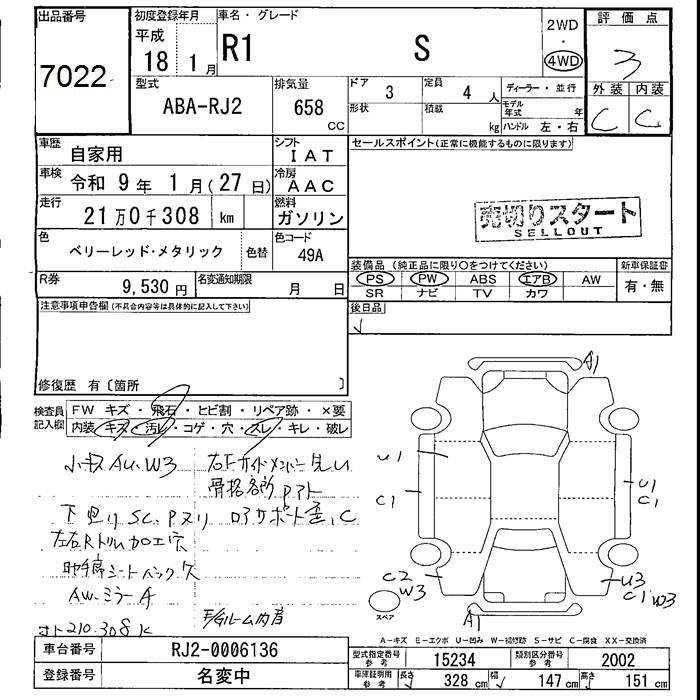 出品番号
7022
初度登録年月
平成
18 1月
車名・グレード
R1 S
2WD
・
4WD
評価点
3
外装 内装
C C
型式
ABA-RJ2
排気量
658
CC
ドア
3
定員
4 人
形状
積載
kg
ディーラー・並行
モデル年式 年
ハンドル 左・右
車歴
自家用
シフト
IAT
車検
令和 9年 1月(27日)
冷房
AAC
走行
21万0千308 km
燃料
ガソリン
色
ベリーレッド・メタリック
色替
色コード
49A
R券
9,530円
名変通知期限
月 日
セールスポイント(正常に機能するものに限ります)
売切りスタート
SELLOUT
装備品 (純正品に限り○をつけてください)
PS PW ABS エアB AW
SR ナビ TV カワ
新車保証書
有・無
後日品
注意事項申告欄(不具合内容等は具体的に記入して下さい)
修復歴 有〔箇所 〕
検査員記入欄
FW キズ・飛石・ヒビ割・リペア跡・×要
内装 キズ・汚レ・コゲ・穴・スレ・キレ・破レ
小キズ AU.W3
骨格各所Pアト
下廻りSC.Pヌリ
左右Rトリム加工穴
助手席シートバック欠
AW.ミラーA
210.308K
A1
U1
C1
U1
C1
C2
W3
U3
C1 W3
A1
スペア
A-キズ E-エクボ U-凹み W-補修跡 S-サビ C-腐食 XX-交換済
車台番号
RJ2-0006136
登録番号
名変中
型式指定番号
参考
15234
類別区分番号
参考
2002
車庫証明用
参考
長さ
328 cm
幅
147 cm
高さ
151 cm